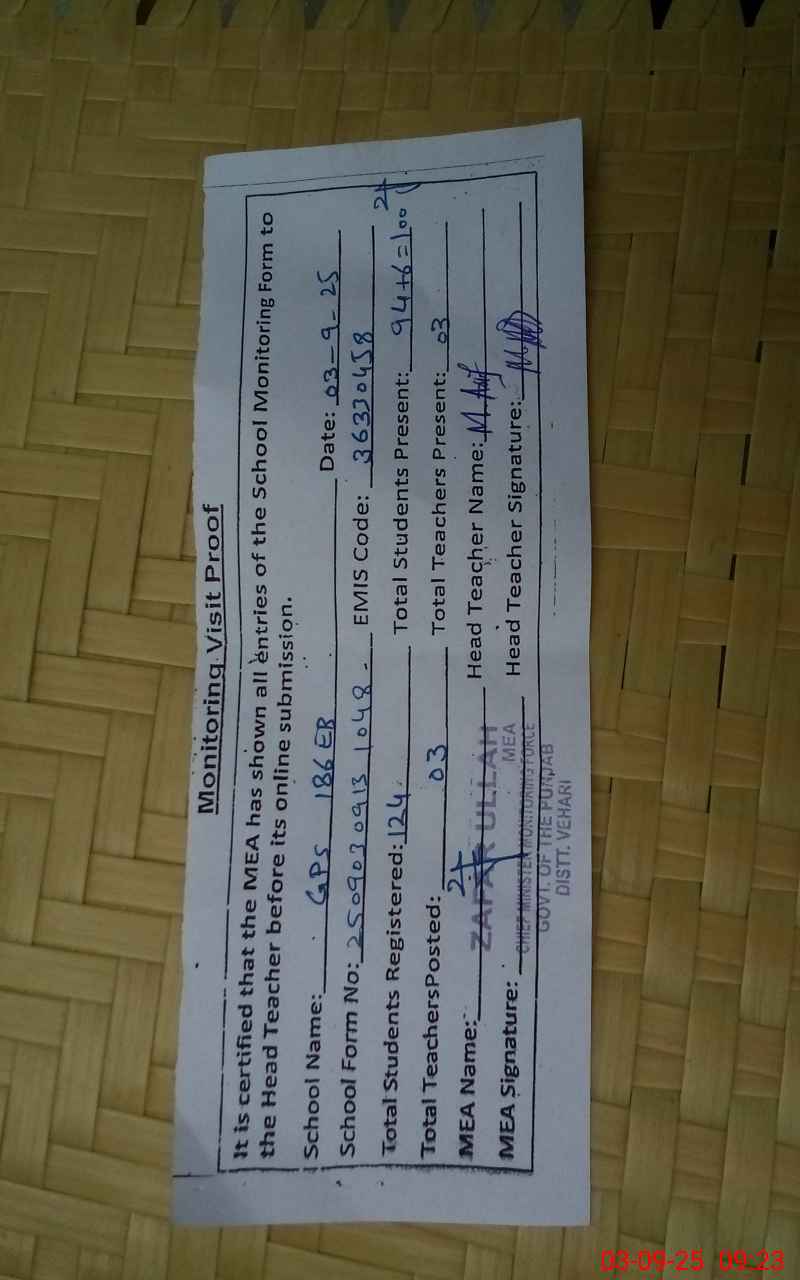 Monitoring Visit Proof
It is certified that the MEA has shown all entries of the School Monitoring Form to
the Head Teacher before its online submission.
School Name: GPS 186 EB Date: 03-9-25
School Form No: 2509030913 1048 - EMIS Code: 36330458
Total Students Registered: 124 Total Students Present: 94+6=100
Total TeachersPosted: 03 Total Teachers Present: 03
MEA Name: ZAFAR ULLAH Head Teacher Name: M. Asif
MEA Signature: Head Teacher Signature:
MEA
CHIEF MINISTER MONITORING FORCE
GOVT. OF THE PUNJAB
DISTT. VEHARI
03-09-25 09:23